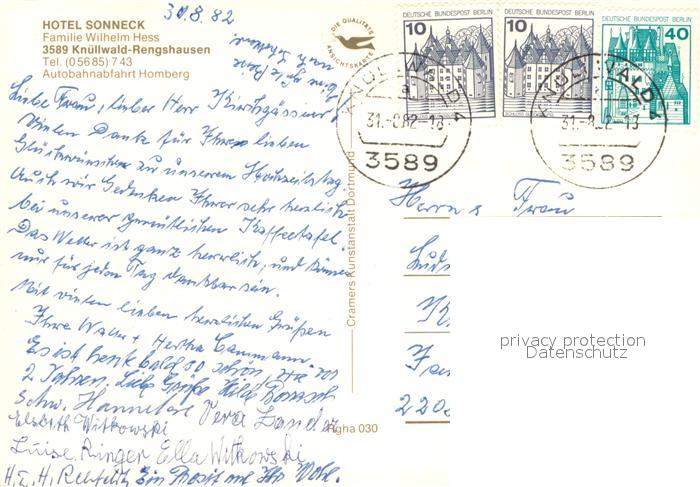 30.8.82
HOTEL SONNECK
Familie Wilhelm Hess
3589 Knüllwald-Rengshausen
Tel. (0 56 85) 7 43
Autobahnabfahrt Homberg
DIE QUALITÄTS
ANSICHTSKARTE
DEUTSCHE BUNDESPOST BERLIN
10
DEUTSCHE BUNDESPOST BERLIN
10
DEUTSCHE BUNDESPOST BERLIN
40
KNÜLLWALD 4
a
31.-8.82-18
3589
KNÜLLWALD 4
31.-8.82-18
3589
Liebe Frau, lieber Herr Kirchgässner!
Vielen Dank für Ihre lieben
Glückwünsche zu unserem Hochzeitstag.
Auch wir gedenken Ihrer sehr herzlich
bei unserer gemütlichen Kaffeetafel.
Das Wetter ist ganz herrlich, und können
nur für jeden Tag dankbar sein.
Mit vielen lieben herzlichen Grüßen
Ihre Walter + Hertha Cammann.
Es ist heute bald so schön, wie vor
2 Jahren. Liebe Grüße Hilde
Schw. Hannelore Vera
Elsbeth Witkowski
Luise Ringer Ella Witkowski
H. u. H. Ein Prosit auf Ihr Wohl.
Cramers Kunstanstalt Dortmund
Rgha 030
Herrn u Frau
220
privacy protection
Datenschutz